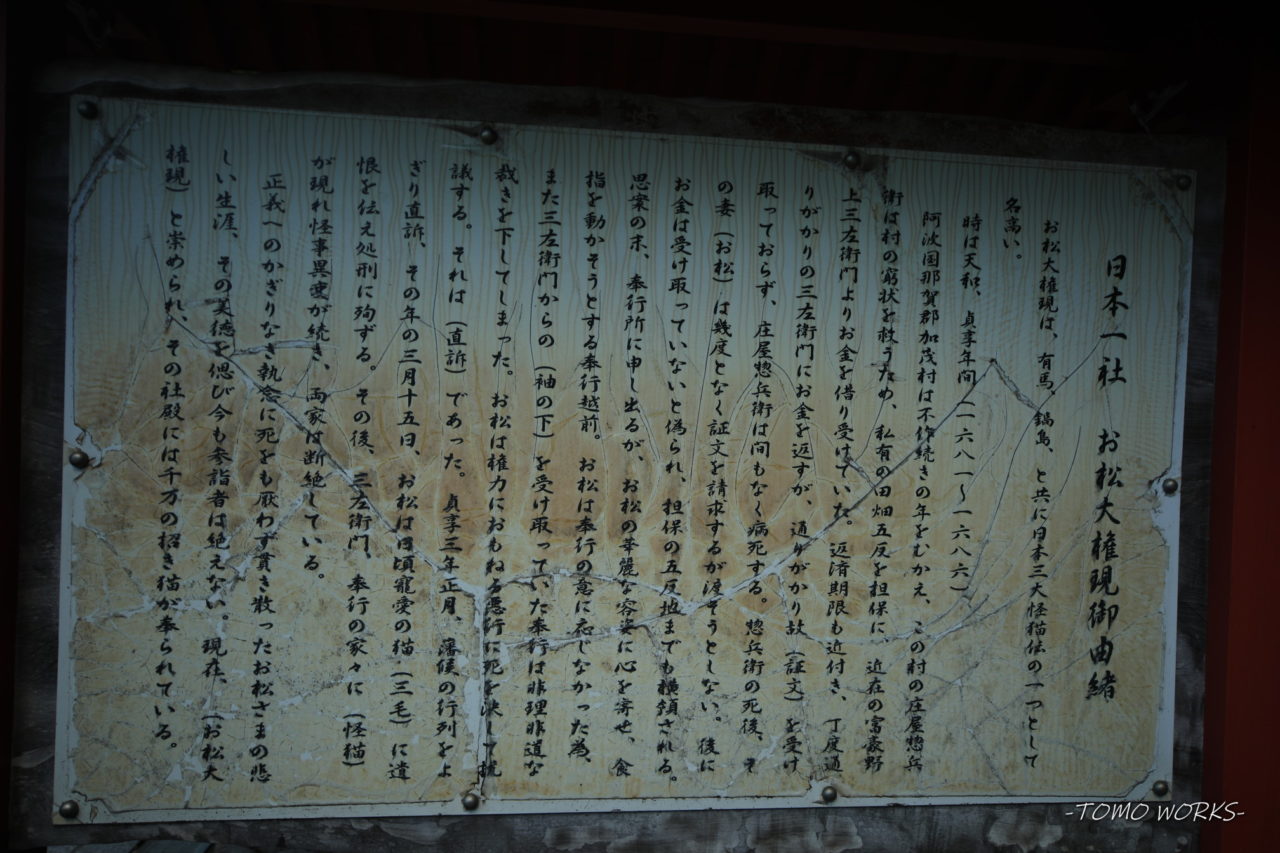 日本一社 お松大権現御由緒
お松大権現は、有馬、鍋島、と共に日本三大怪猫伝の一つとして
名高い。
時は天和、貞享年間(一六八一～一六八六)
阿波国那賀郡加茂村は不作続きの年をむかえ、この村の庄屋惣兵
衛は村の窮状を救うため、私有の田畑五反を担保に、近在の富豪野
上三左衛門よりお金を借り受けていた。返済期限も近付き、丁度通
りがかりの三左衛門にお金を返すが、通りがかり故(証文)を受け
取っておらず、庄屋惣兵衛は間もなく病死する。惣兵衛の死後、そ
の妻(お松)は幾度となく証文を請求するが渡そうとしない。後に
お金は受け取っていないと偽られ、担保の五反地までも横領される。
思案の末、奉行所に申し出るが、お松の華麗な容姿に心を寄せ、食
指を動かそうとする奉行越前。お松は奉行の意に応じなかった為、
また三左衛門からの(袖の下)を受け取っていた奉行は非理非道な
裁きを下してしまった。お松は権力におもねる悪行に死を決して抗
議する。それは(直訴)であった。貞享三年正月、藩候の行列をよ
ぎり直訴、その年の三月十五日、お松は日頃寵愛の猫(三毛)に遺
恨を伝え処刑に殉ずる。その後、三左衛門、奉行の家々に(怪猫)
が現れ怪事異変が続き、両家は断絶している。
正義へのかぎりなき執念に死をも厭わず貫き散ったお松さまの悲
しい生涯、その美徳を偲び今も参詣者は絶えない。現在、(お松大
権現)と崇められ、その社殿には千万の招き猫が奉られている。
-TOMO WORKS-